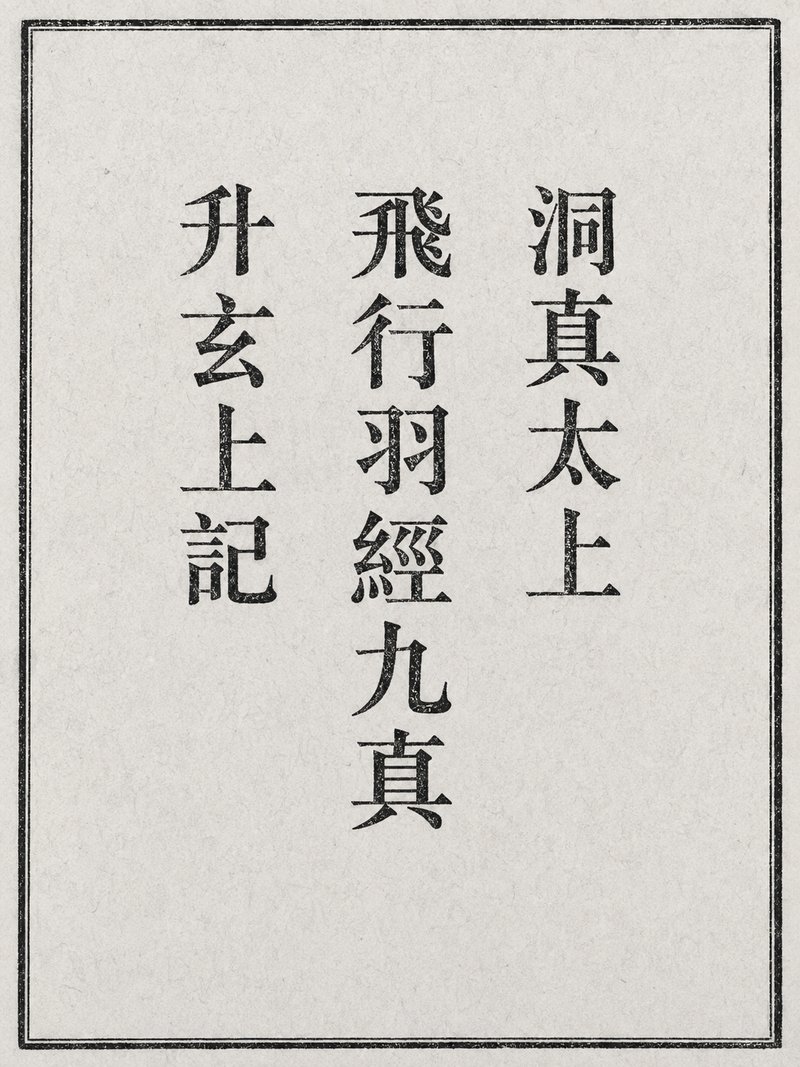 洞真太上
飛行羽經九真
升玄上記